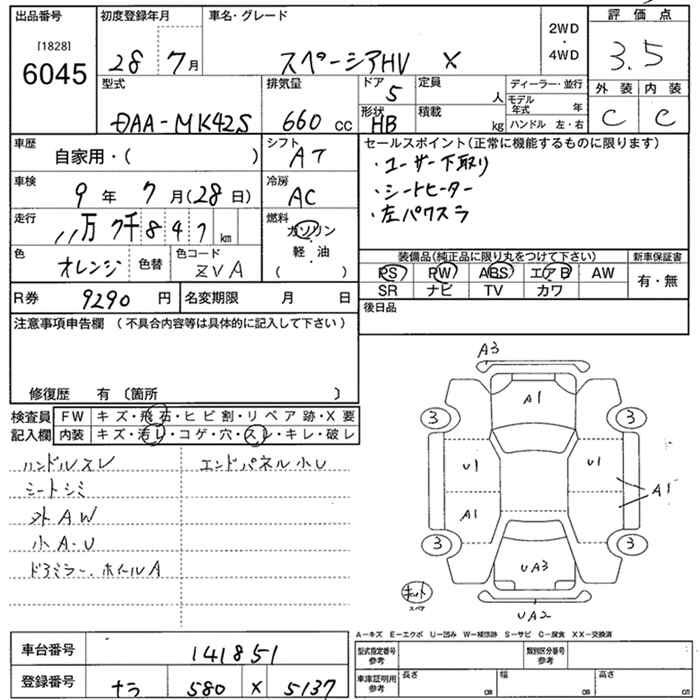 出品番号 初度登録年月 車名・グレード 2WD・4WD 評価点
[1828]
6045
28年 7月 スペーシアHV X 3.5
型式 排気量 ドア 定員 ディーラー・並行 外装 内装
DAA-MK42S 660 cc 5 人 モデル年式 年 C C
形状 積載
HB kg ハンドル 左・右
車歴 シフト セールスポイント(正常に機能するものに限ります)
自家用・( ) AT ・ユーザー下取り
車検 冷房 ・シートヒーター
9年 7月(28日) AC ・左パワスラ
走行 燃料
11万 7千 8 4 7 km ガソリン
軽・油
( )
色 色替 色コード
オレンジ ZVA
装備品(純正品に限り丸をつけて下さい) 新車保証書
PS PW ABS エアB AW 有・無
SR ナビ TV カワ
R券 9290 円 名変期限 月 日 後日品
注意事項申告欄 (不具合内容等は具体的に記入して下さい)
修復歴 有 〔箇所 〕
検査員 FW キズ・飛石・ヒビ割・リペア跡・X要
記入欄 内装 キズ・汚レ・コゲ・穴・スレ・キレ・破レ
ハンドルスレ エンドパネル小U
シートシミ
外AW
小A・U
ドアミラー、ホイールA
A3
A1
3 3
U1 U1
A1 A1
3 3
UA3
キット
スペア
UA2
A−キズ E−エクボ U−凹み W−補修跡 S−サビ C−腐食 XX−交換済
車台番号 141851
登録番号 ナラ 580 X 5137
型式指定番号 参考 類別区分番号 参考
車庫証明用 参考 長さ cm 幅 cm 高さ cm